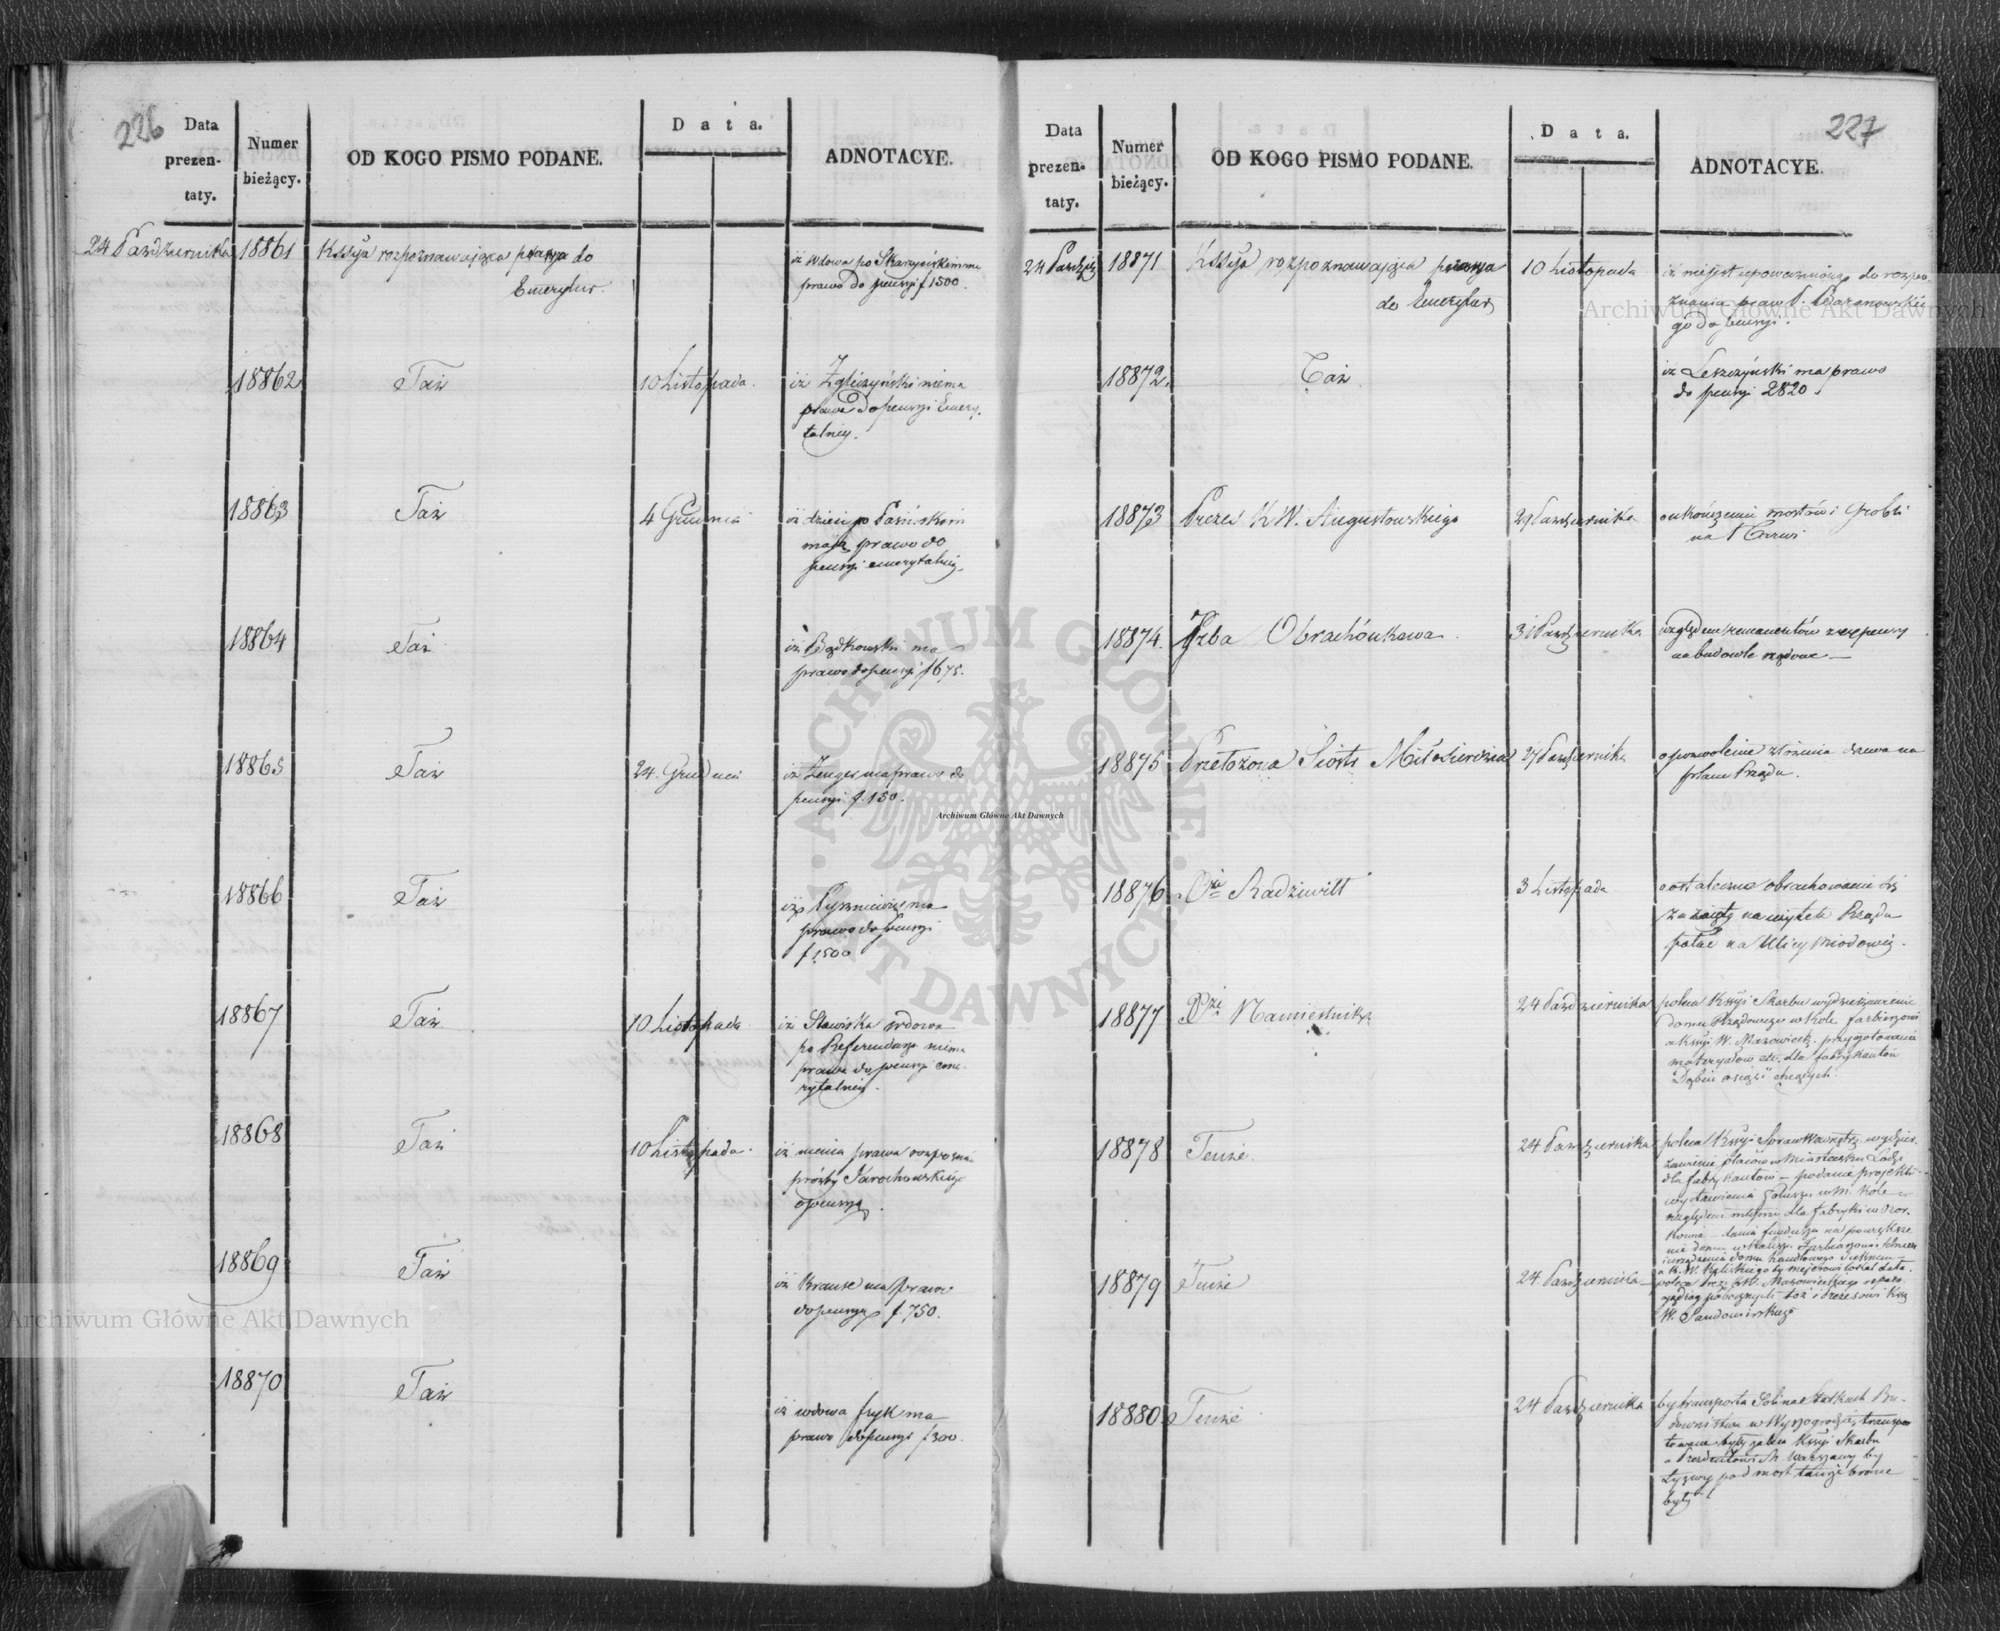 226
Data prezen- taty.
Numer bieżący.
OD KOGO PISMO PODANE.
Data.
ADNOTACYE.
24 Października 18861 Kssya rozpoznawająca prawa do
Emerytur.
iż wdowa po Skarzyńskim ma
prawo do pensyi f 1500.
18862 Taż 10 Listopada.
iż Zgliczyński niema
prawa do pensyi Emery-
talney.
18863 Taż 4 Grudnia
iż dzieci po
mają prawo do
pensyi emerytalney.
18864 Taż
iż Bądkowski ma
prawo do pensyi f 675.
18865 Taż 24 Grudnia
iż Zenges ma prawo do
pensyi f. 150.
18866 Taż
iż ma
prawo do pensyi
f 1500
18867 Taż 10 Listopada
iż Stawiska wdowa
po Referendarzu niema
prawa do pensyi eme-
rytalney.
18868 Taż 10 Listopada.
iż niema prawa rozpozna
prośby Jarochowskiego
o pensyą.
18869 Taż
iż Krause ma prawo
do pensyi f. 750.
18870 Taż
iż wdowa fryk ma
prawo do pensyi f 300.
227
Data prezen- taty.
Numer bieżący.
OD KOGO PISMO PODANE.
Data.
ADNOTACYE.
24 Paźdz 18871 Kssya rozpoznawająca prawa
do Emerytur
10 Listopada
iż niejest upoważnioną do rozpo-
znania praw P. Baranowskie-
go do pensyi.
18872. Taż
iż Leszczyński ma prawo
do pensyi 2820.
18873 Prezes K W. Augustowskiego 29 Października
o ukończeniu mostów i Grobli
na Narwi
18874. Izba Obrachónkowa. 31 Października
względem remanentów
na budowle rządowe —
18875 Przełożona Siostr Miłosierdzia 27 Października
o pozwolenie złożenia drzewa na
placu Rządu.
18876 Xże Radziwiłł 3 Listopada
o ostateczne obrachowanie się
za zajęty na użytek Rządu
pałac na Ulicy Miodowey.
18877 Xże Namiestnik 24 Października
poleca Kssyi Skarbu wydzierżawienie
domu Rządowego w Kole farbierzowi
a Kssyi W. Mazowieck. przygotowania
materyałów etc. dla fabrykantów
Dąbiu osiąść chcących.
18878 Tenże. 24 Października
poleca Kssyi Spraw Wewnętrz wydzier-
żawienie placów w Miasteczku Łodzi
dla fabrykantów — podanie projektu
wystawienia w M. Kole —
względem dla fabryki w
fundusze na powiększe
nie domu w Kaliszu
urządzenia domu handlowego
18879 Tenże 24 Października
a K. W. Kaliskiego by
poleca Prez: KW. Mazowieckiego
dróg pobocznych toż i Prezesowi Kssyi
W. Sandomirskiego
18880 Tenże 24 Października
by transporta Soli na Statkach Bu-
downictwa w Wyszogrodzie transpor
towane były zaleca Kssyi Skarbu
a Prezydentowi M. Warszawy by
łyżwy pod most tamże brane
były
Archiwum Główne Akt Dawnych
Archiwum Główne Akt Dawnych
Archiwum Główne Akt Dawnych
ARCHIWUM GŁÓWNE AKT DAWNYCH